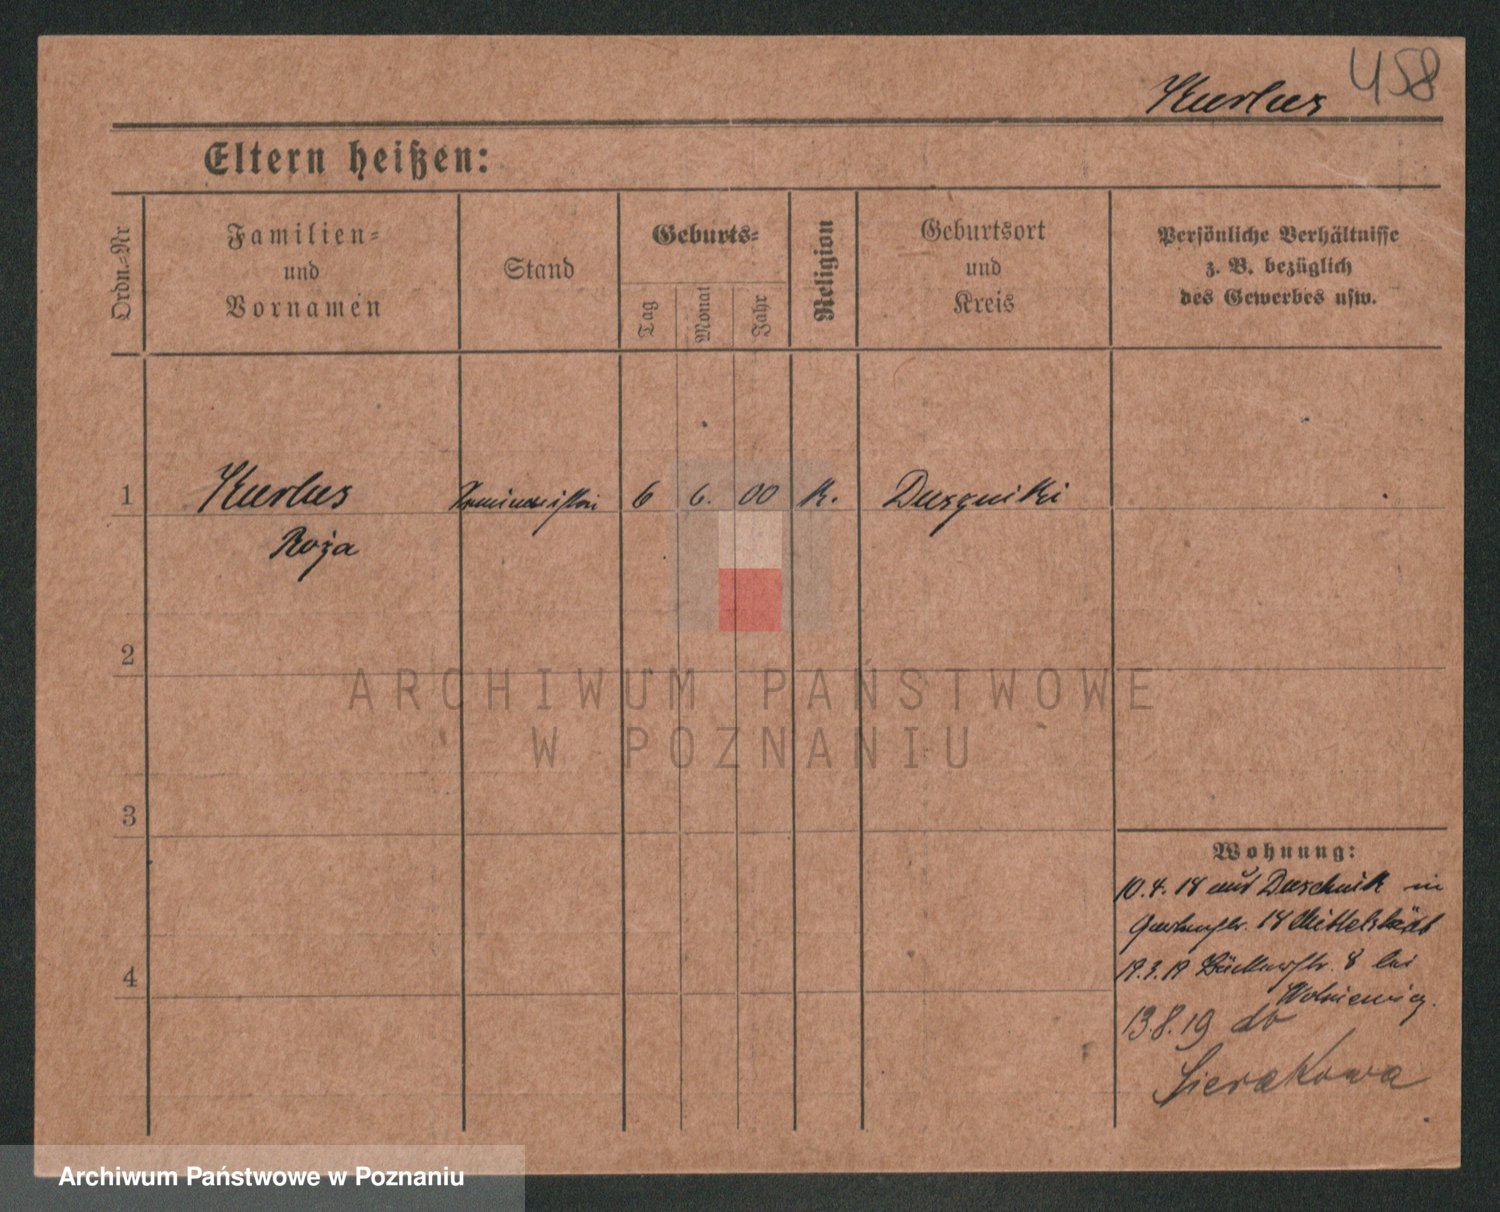 458
Kurlus
Eltern heißen:
Ordn.-Nr
Familien-
und
Vornamen
Stand
Geburts-
Tag
Monat
Jahr
Religion
Geburtsort
und
Kreis
Persönliche Verhältnisse
z. B. bezüglich
des Gewerbes usw.
1
Kurlus
6
6.
00
k.
Duszniki
Roża
2
ARCHIWUM PAŃSTWOWE
W POZNANIU
3
Wohnung:
10.4.18 aus Duschnik in
18 Mittelstädt
8 bei
Wolniewicz.
4
13.8.19 do
Sierakowa
Archiwum Państwowe w Poznaniu